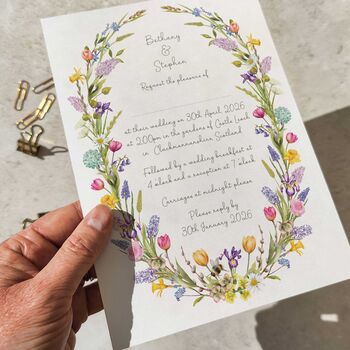 Bethany
&
Stephen
Request the pleasure of
at their wedding on 30th April 2026
at 2.00pm in the gardens of Castle Leach
in Clackmannanshire Scotland
Followed by a wedding breakfast at
4 o'clock and a reception at 7 o'clock
Carriages at midnight please
Please reply by
30th January 2026